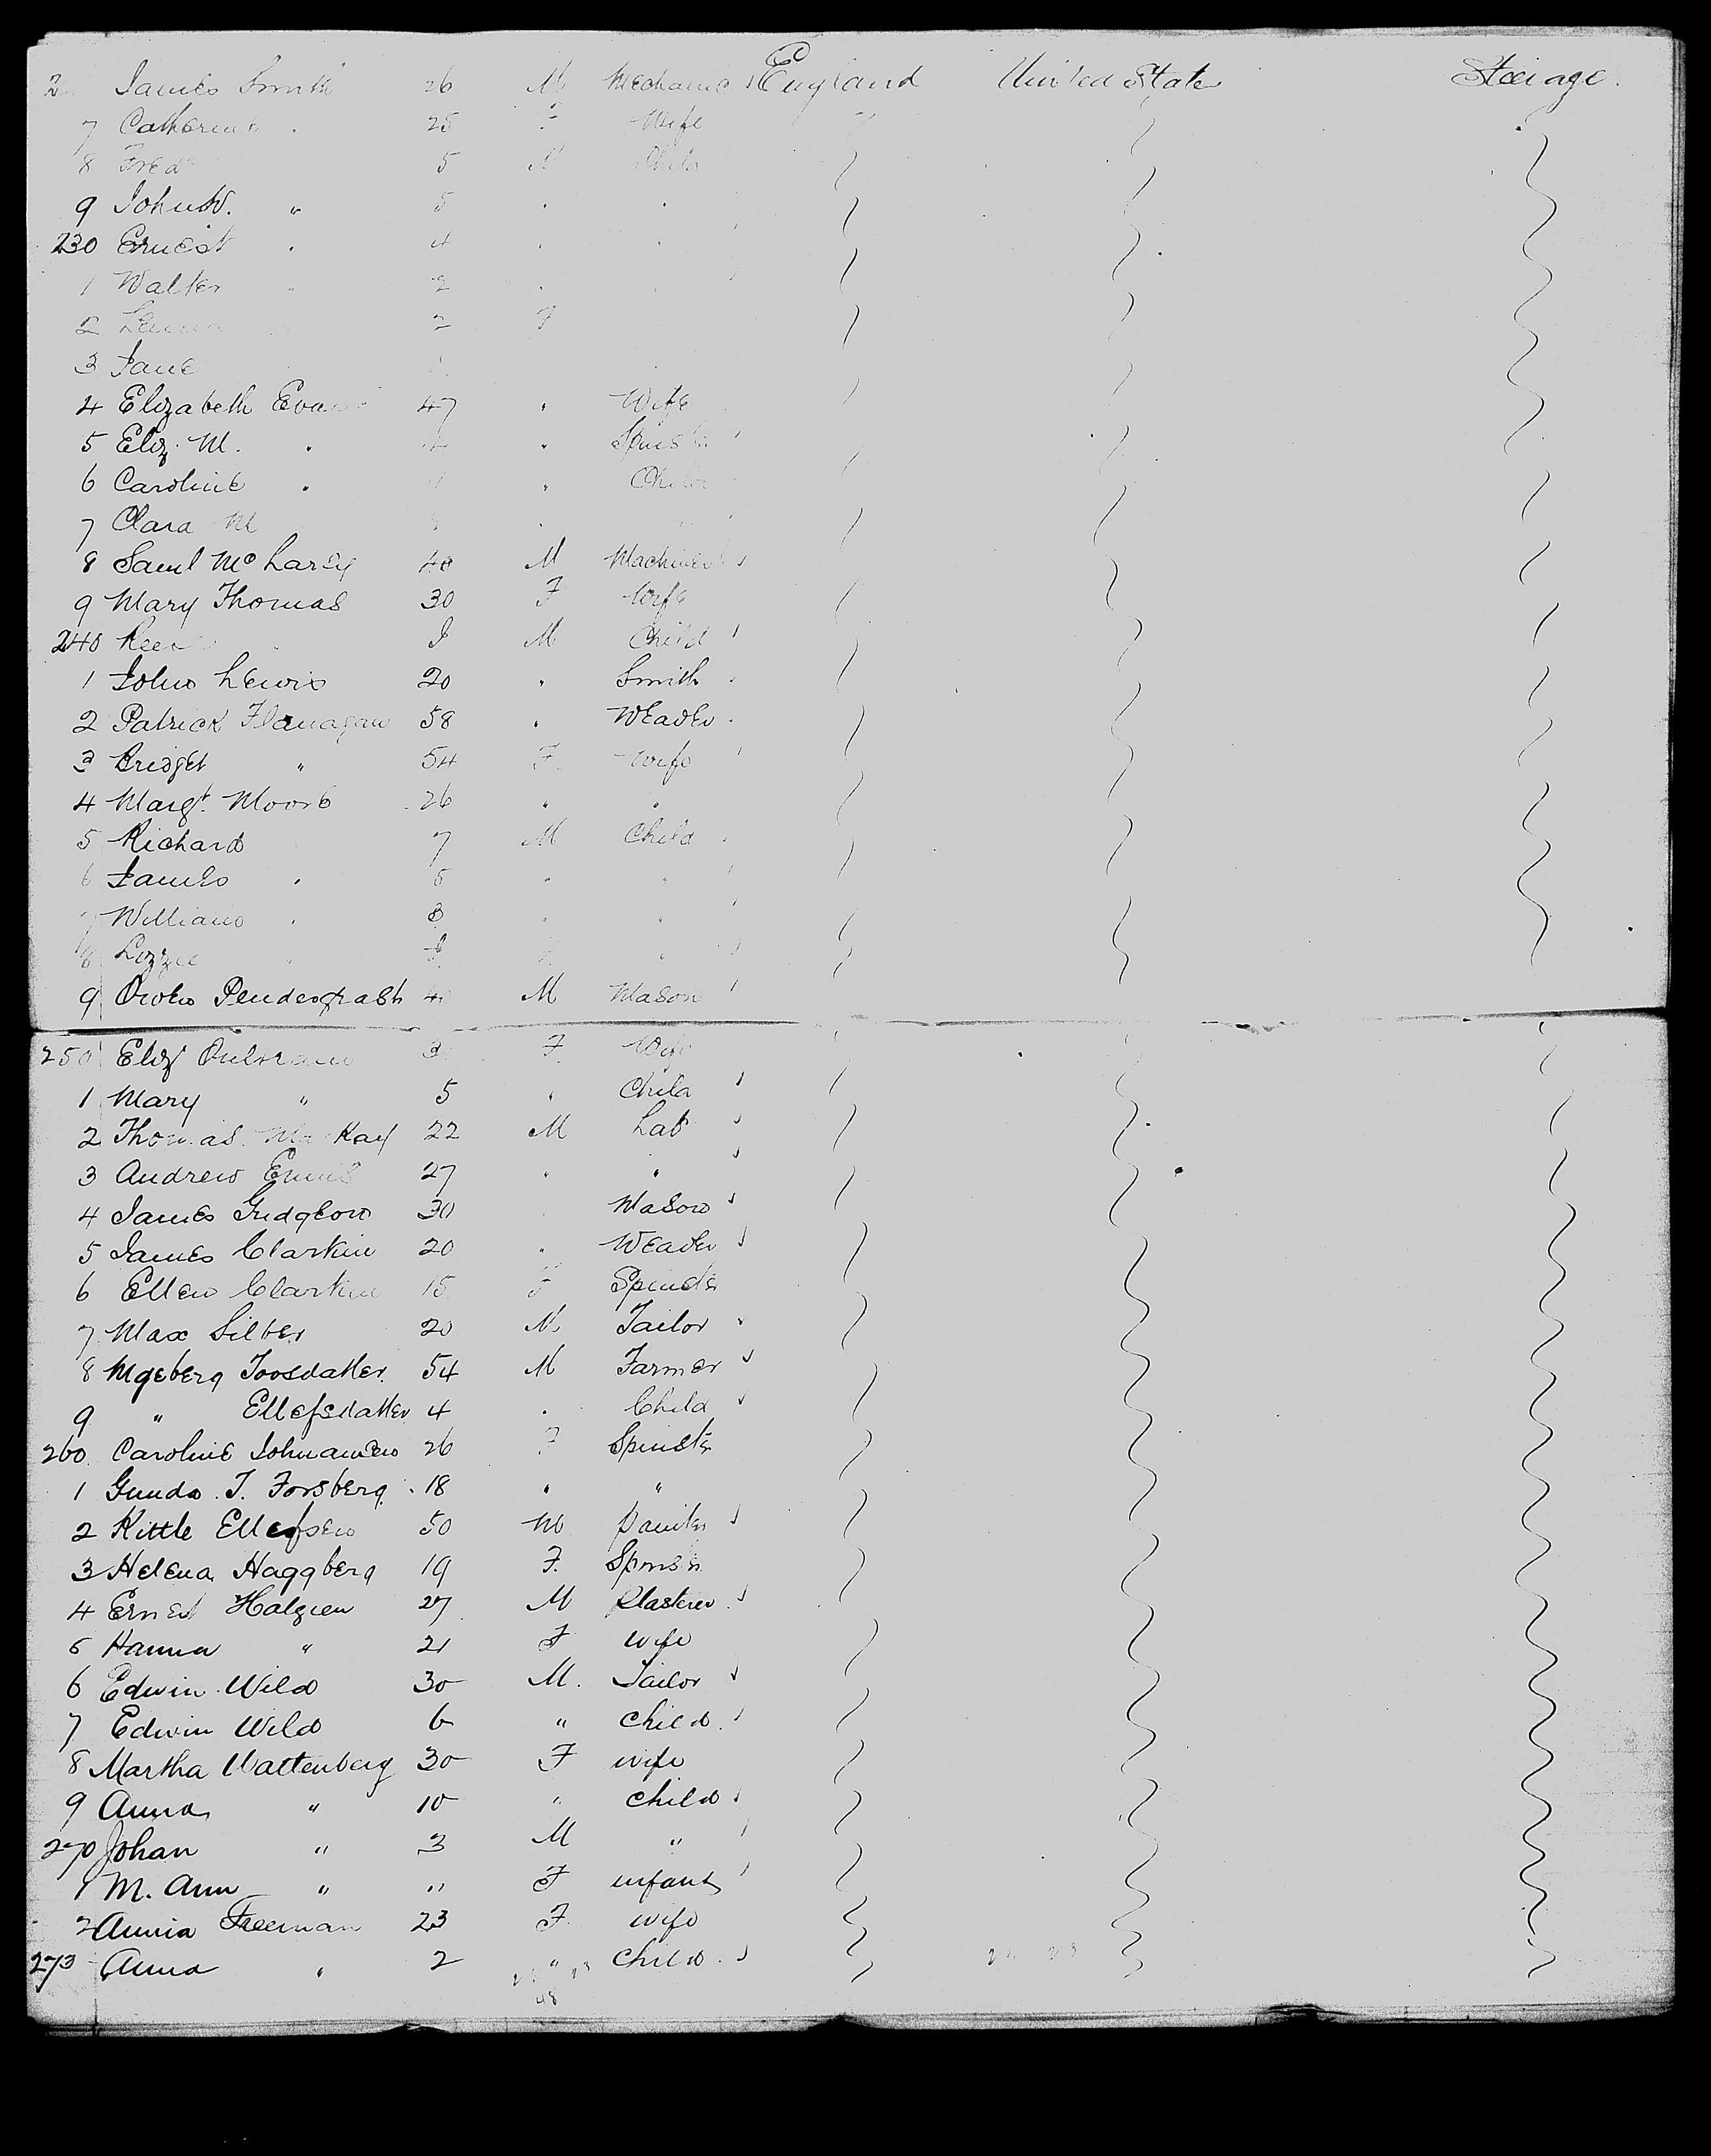 2 James Smith 26 M Mechanic England United State Steerage.
7 Catherine . 25 F Wife
8 Fred 5 M Child
9 John W. " 5 . .
230 Ernest . 4 . .
1 Walter " 2 .
2 2 F
3 Jane
4 Elizabeth Evans 47 " Wife
5 Eliz. M. . " Spinster
6 Caroline . " Child
7 Clara M .
8 Saml Mc Larey 40 M Machinest
9 Mary Thomas 30 F Wife
240 M Child
1 John Lewis 20 " Smith
2 Patrick Flanagan 58 " Weaver
3 Bridget " 54 F Wife
4 Margt. Moore 26 " "
5 Richard 7 M Child
6 James . 5 " "
7 William . 3 " "
8 Lizzie " "
9 Owen Pendergrash 40 M Mason
250 Eliz F Wife
1 Mary " 5 " Child
2 Thomas MacKay 22 M Lab
3 Andrew Ennis 27 " "
4 James Gudgeon 30 Mason
5 James Clarkin 20 " Weaver
6 Ellen Clarkin 15 F Spinster
7 Max Silber 20 M Tailor
8 Mgeberg Toosdatter 54 M Farmer
9 " Ellefsdatter 4 . Child
260. Caroline Johnansen 26 F Spinster
1 Gunda. T. Forsberg. 18 " "
2 Kittle Ellefsen 50 M Painter
3 Helena Haggberg 19 F. Spinster
4 Ernest Halgren 27 M Plasterer
5 Hanna " 21 F Wife
6 Edwin Wild 30 M. Tailor
7 Edwin Wild 6 " Child.
8 Martha Wattenberg 30 F wife
9 Anna " 10 " Child
270 Johan " 3 M "
1 M. Ann " " F infant
2 Annia Freeman 23 F. wife
273 Anna " 2 " Child.
48